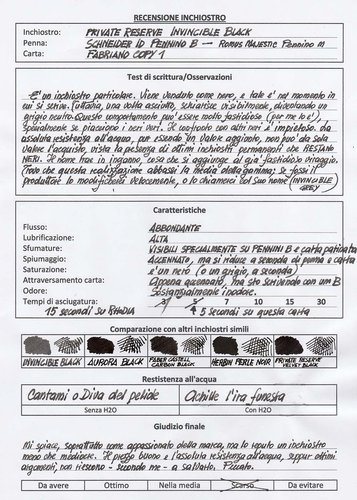 RECENSIONE INCHIOSTRO
Inchiostro: PRIVATE RESERVE INVINCIBLE BLACK
Penna: SCHNEIDER ID PENNINO B – ROMUS MAJESTIC PENNINO M
Carta: FABRIANO COPY 1
Test di scrittura/Osservazioni
E' un inchiostro particolare. Viene venduto come nero, e tale è nel momento in
cui si scrive. Tuttavia, una volta asciutto, schiarisce visibilmente, diventando un
grigio neutro. Questo comportamento può essere molto fastidioso (per me lo è),
specialmente se piacciono i neri veri. Il confronto con altri neri è impietoso, da
assoluta resistenza all'acqua, pur essendo un valore aggiunto, non può da sola
valere l'acquisto, vista la presenza di ottimi inchiostri permanenti che RESTANO
NERI. Il nome trae in inganno, cosa che si aggiunge al già fastidioso viraggio.
Trovo che questa realizzazione abbassi la media della gamma; se fossi il
produttore lo modificherei velocemente, o lo chiamerei col suo nome (INVINCIBLE
GREY)
Caratteristiche
Flusso: ABBONDANTE
Lubrificazione: ALTA
Sfumature: VISIBILI SPECIALMENTE SU PENNINI B e carta patinata
Spiumaggio: ACCENNATO, ma si riduce a seconda di penna e carta
Saturazione: è un nero (o un grigio, a seconda)
Attraversamento carta: Appena accennato, ma sto scrivendo con un B
Odore: Sostanzialmente inodore.
Tempi di asciugatura: 3 5 7 10 15 30
15 secondi su RHODIA 5 secondi su questa carta
Comparazione con altri inchiostri simili
INVINCIBLE BLACK AURORA BLACK FABER CASTELL CARBON BLACK HERBIN PERLE NOIR PRIVATE RESERVE VELVET BLACK
Restistenza all'acqua
Cantami o Diva del pelide Achille l'ira funesta
Senza H2O Con H2O
Giudizio finale
Mi spiace, soprattutto come appassionato della marca, ma lo reputo un inchiostro
meno che mediocre. Il prezzo buono e l'assoluta resistenza all'acqua, seppur ottimi
argomenti, non riescono - secondo me - a salvarlo. Peccato.
Da avere Ottimo Nella media Scarso Da evitare